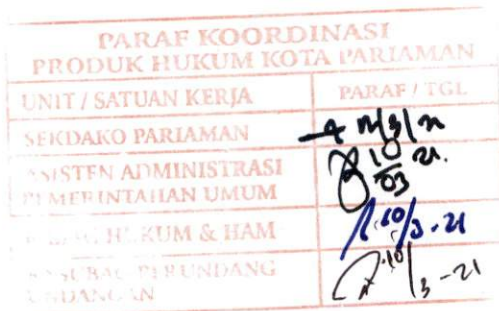 PARAF KOORDINASI
PRODUK HUKUM KOTA PARIAMAN
UNIT / SATUAN KERJA PARAF / TGL
SEKDAKO PARIAMAN
ASISTEN ADMINISTRASI 10/03 21.
PEMERINTAHAN UMUM
HUKUM & HAM 10/3-21
KASUBAG PERUNDANG 10/3-21
UNDANGAN